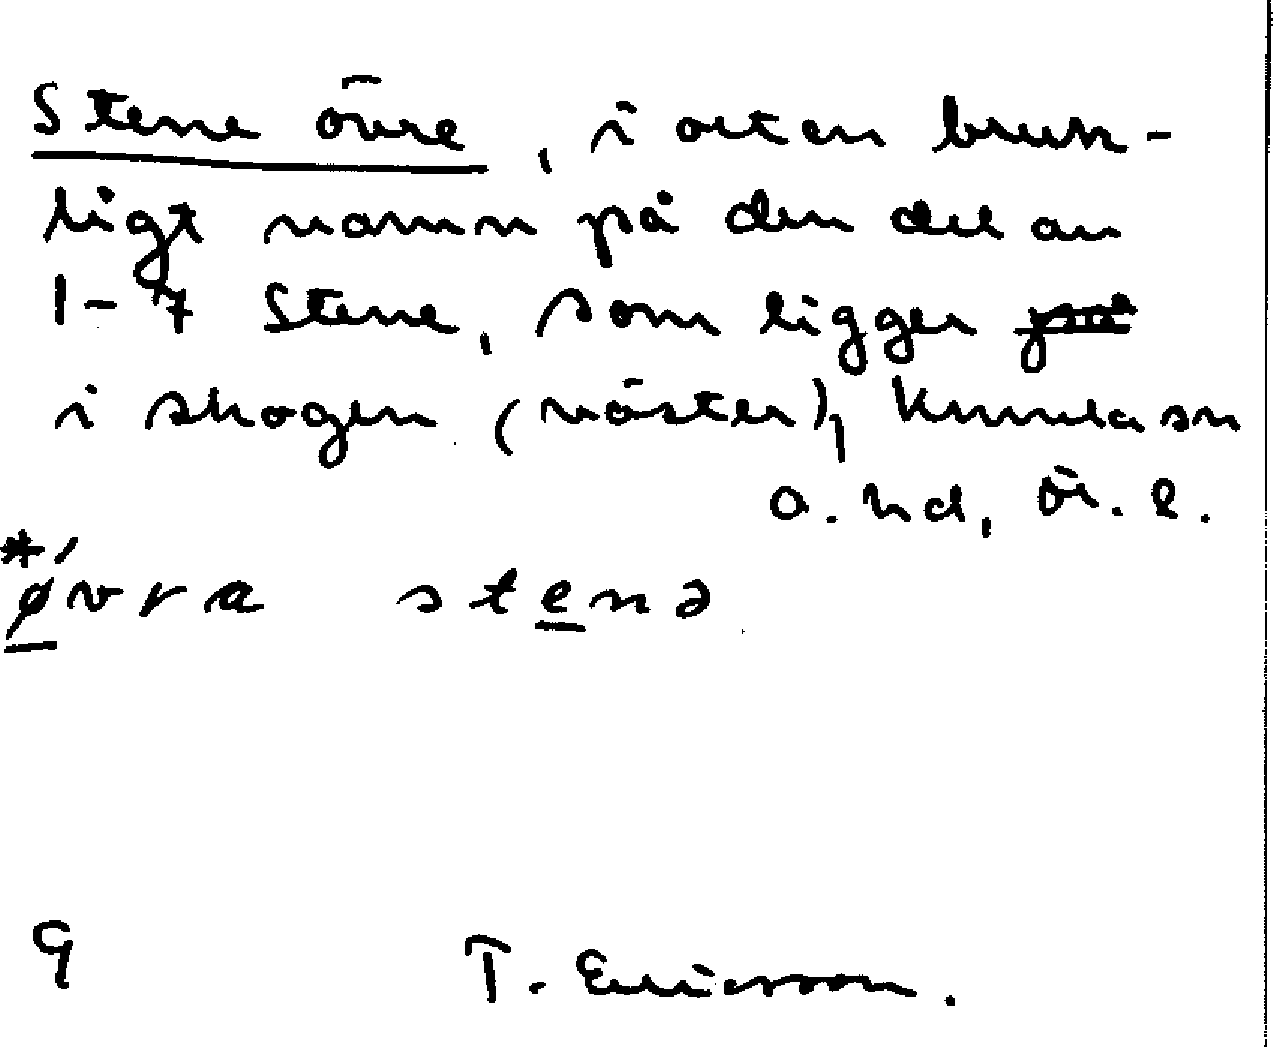 Stene övre, i orten bruk-
ligt namn på den del av
1-7 Stene, som ligger
i skogen (väster), Kumla sn
o. hd, Ör. l.
*'øvra stenə
9 T. Ericsson.